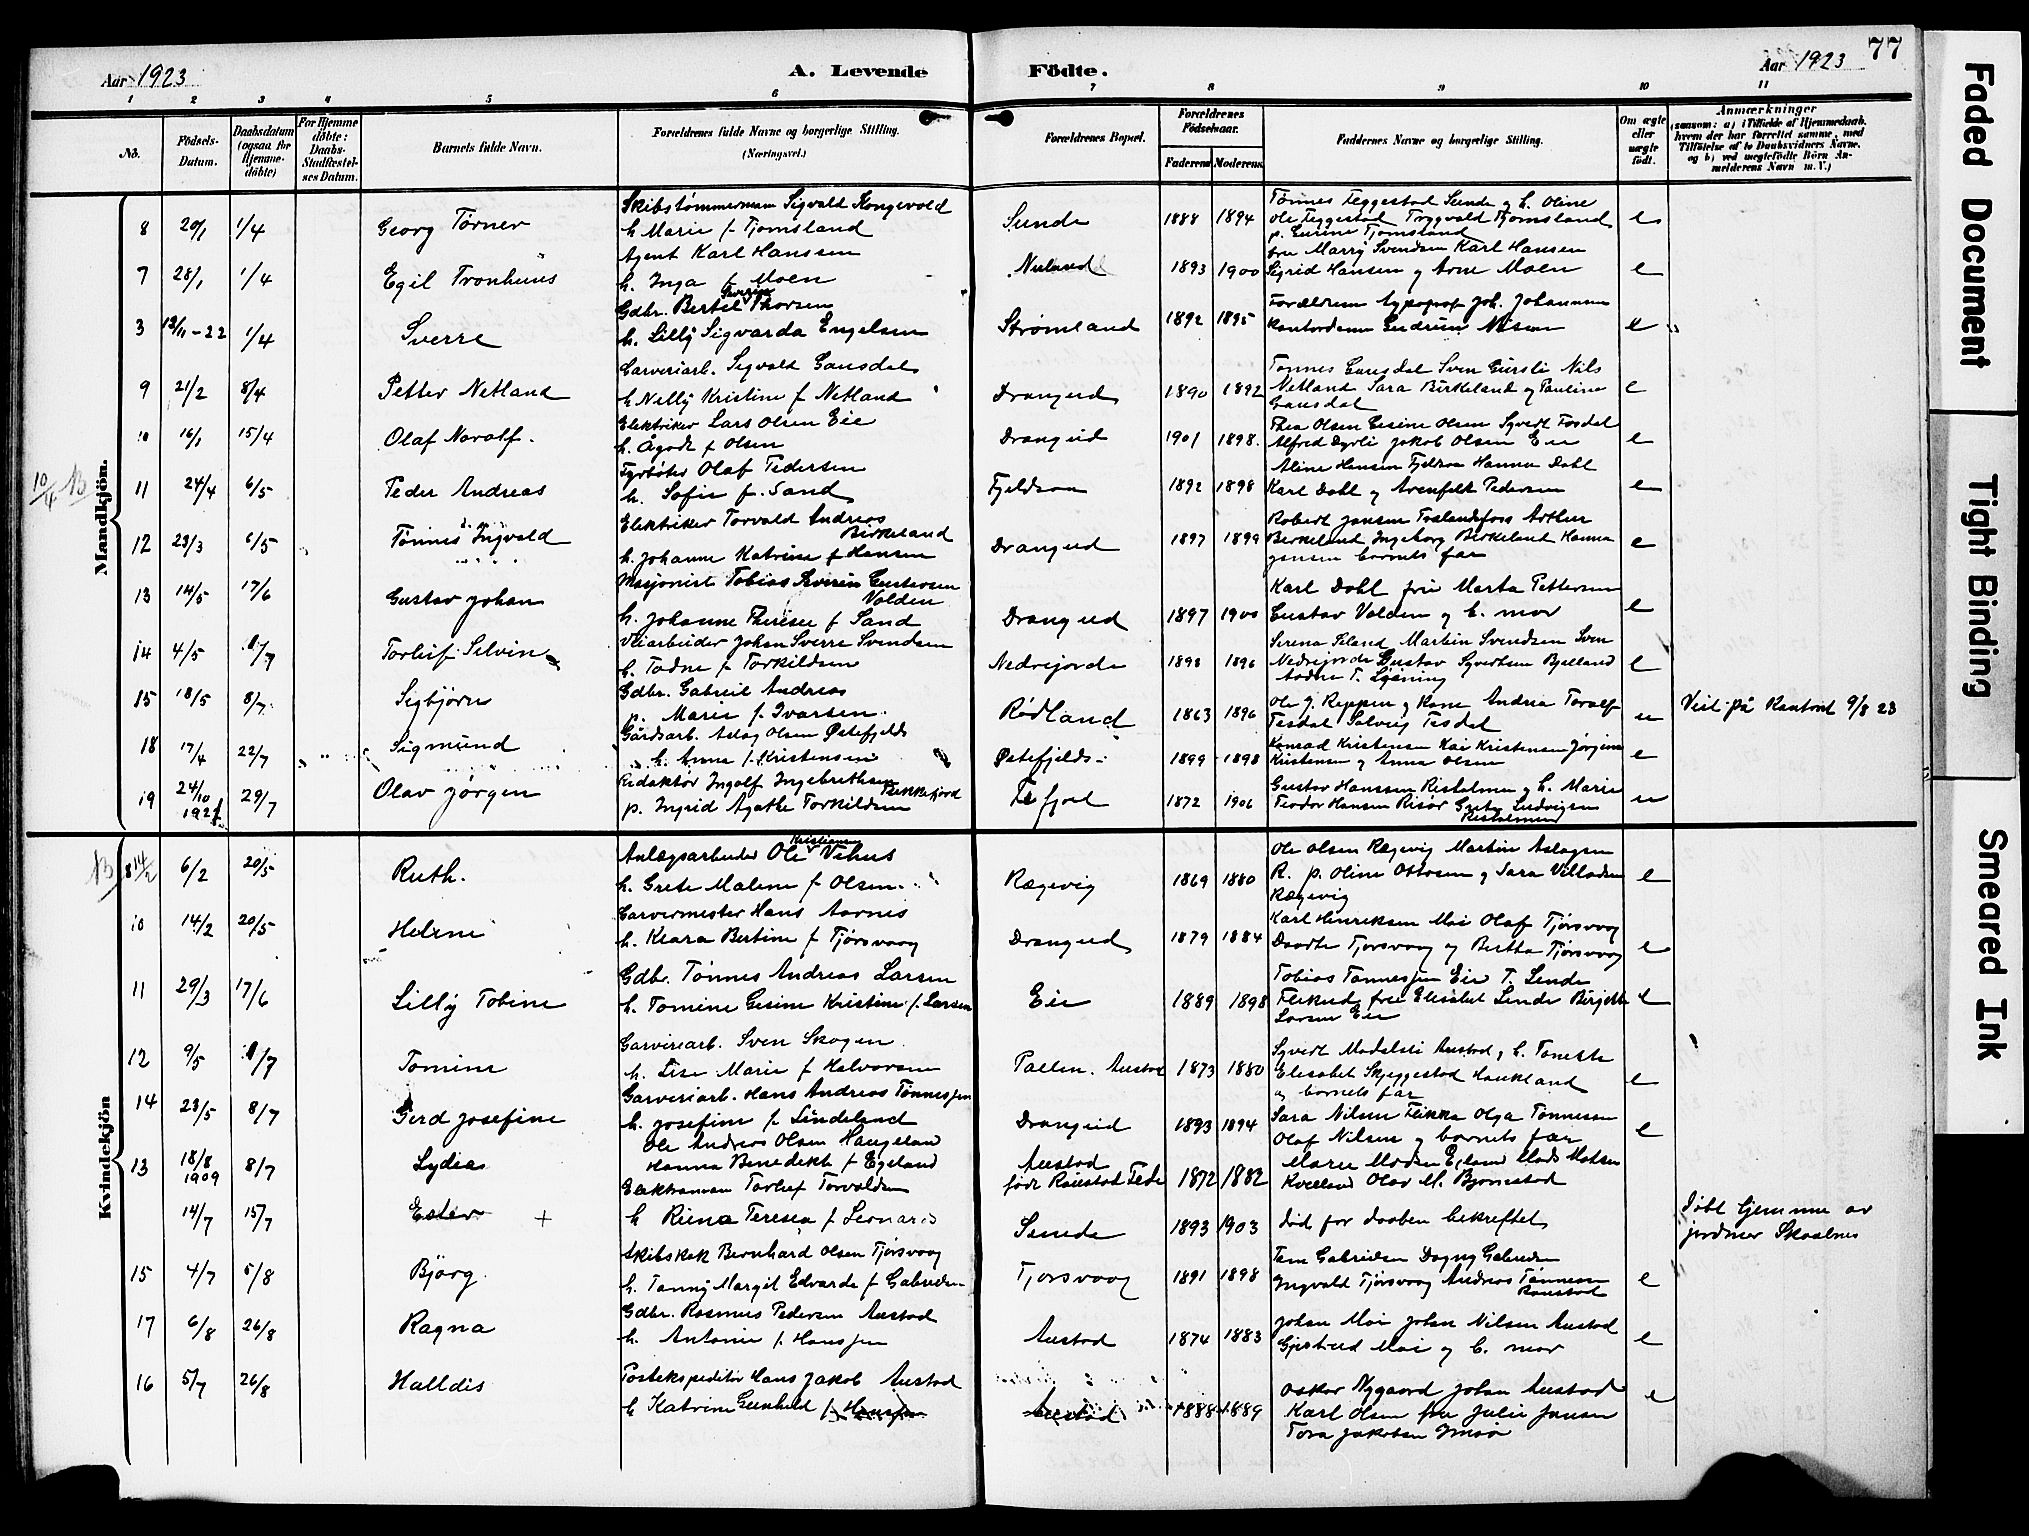 Aar 1923
A. Levende
Födte.
Aar 1923
77
1 2 3 4 5 6 7 8 9 10 11
No.
Födsels-Datum.
Daabsdatum (ogsaa for Hjemme-döbte)
For Hjemme döbte: Daabs-Stadfæstelses Datum.
Barnets fulde Navn.
Forældrenes fulde Navne og borgerlige Stilling. (Næringsvei.)
Forældrenes Bopæl.
Forældrenes Födselsaar.
Faderens Moderens
Faddernes Navne og borgerlige Stilling.
Om ægte eller uægte födt.
Anmærkninger
(saasom: a) i Tilfælde af Hjemmedaab, hvem der har forrettet samme, med Tilföielse af to Daabsvidners Navne, og b) ved uegtefödte Börn Anmelderens Navn m. V.)
Mandkjön.
8 20/1 1/4 Georg Törner
Skibstømmermann Sigvald Kongevold
h Marie f Tjomsland
Sunde 1888 1894
Tønnes Feggestad Sunde og h. Oline
Ole Feggestad Trygvald Tjomsland
p. Gurine Tjomsland
e
7 28/1 1/4 Egil Tronhuus
Agent Karl Hanssen
h. Inga f Moen
Nuland 1893 1900
fru Marry Svendsen Karl Hansen
Sigrid Hansen og Arne Moen
e
3 12/11-22 1/4 Sverre
Gdbr. Bertel Severin Thorsen
h. Lilly Sigvarda Engelsen
Strømland 1892 1895
Forældrene Typograf Joh. Johannesen
Kontordame Gudrun Nissen
e
9 21/2 8/4 Petter Netland
Garveriarb. Sigvald Gausdal
h Nelly Kristine f Netland
Drangeid 1890 1892
Tønnes Gausdal Sven Gursli Nils
Netland Sara Birkeland og Pauline
Gausdal
e
10 16/1 15/4 Olaf Noralf.
Elektriker Lars Olsen Eie
h. Ågodt f Olsen
Drangeid 1901 1898.
Thea Olsen Gesine Olsen Syvert Fosdal
Alfred Dyrli Jakob Olsen Eie
e
10/4 B
11 24/4 6/5 Peder Andreas
Fyrbøter Olaf Pedersen
h. Sofie f. Sand
Fjeldsaa 1892 1898
Aline Hansen Fjelsaa Hanna Dahl
Karl Dahl og Arenfelt Pedersen
e
12 23/3 6/5 Tönnes Ingvald
Elektriker Torvald Andreas
Birkeland
h. Johanne Katrine f Hansen
Drangeid 1897 1899
Robert Jansen Trælandsfoss Arthur
Birkeland Ingeborg Birkeland Hanna
Jansen barnets far
e
13 14/5 17/6 Gustav Johan
Maskonist Tobias Severin Gustavsen
Valden
h. Johanne Therese f Sand
Drangeid 1897 1900
Karl Dahl fru Marta Pettersen
Gustav Valden og b. mor
e
14 4/5 1/7 Torleif Selvin
Veiarbeider Johan Sverre Svendsen
h. Todne f Torkildsen
Nedrejorde 1898 1896
Serena Iland Martin Svendsen Sven
Nedrejorde Gustav Syvertsen Bjelland
Todne T. Løining
e
15 18/5 8/7 Sigbjørn
Gdbr. Gabriel Andreas
p. Marie f. Ivarsen.
Rødland 1863 1896
Ole J. Reppen og Kone Andrea Toralf
Tesdal Solveig Tesdal
u
Veit. på Kontrad 9/8 23
18 17/4 22/7 Sigmund
Gårdsarb. Aslag Olsen Østefjelds
h. Anna f. Kristensen
Østefjelds- 1899 1898
Konrad Kristensen Kai Kristensen Jörgine
Kristensen og Anna Olsen
e
19 24/10 1921 29/7 Olav Jörgen
Redaktør Ingolf Ingebrethsen
Rekkefjord
p. Ingrid Agathe Torkildsen
1872 1906
Gustav Hanssen Ristalmen og h. Marie
Teodor Hansen Risör Grete Ludvigsen
Ristalmen
u
Kvindekjön
B 14/2
8 6/2 20/5 Ruth.
Anlægsarbeider Ole Kristian Vehus
h. Grete Malene f Olsen.
Rægevig 1869 1880
Ole Olsen Rægevig Martin Aslagsen
R. p. Oline Ottosen og Sara Villadsen
Rægevig
e
10 14/2 20/5 Helene
Garvermester Hans Aarnes
h. Klara Bertine f Tjørsvaag
Drangeid 1879 1884
Karl Henriksen Moi Olaf Tjørsvaag
Dorthe Tjørsvaag og Bertha Tjørsvaag
e
11 29/3 17/6 Lilly Tobine
Gdbr. Tönnes Andreas Larsen
h. Tomine Gesine Kristine f. Larsen
Eie 1889 1898
Tobias Tønnesjen Eie T. Sunde
Flekud fru Elisabet Sunde Birgitte
Larsen Eie
e
12 9/5 1/7 Tomine
Garveriarb. Sven Skogen
h. Lise Marie f Halvorsen
Austad 1873 1880
Syvert Modalsli Austad og h. Tonette
Elisabet Skjeggestad Haukland
og barnets far
e
14 23/5 8/7 Gerd Josefine
Garveriarb. Hans Andreas Tønnesjen
h. Josefine f Lindeland
Drangeid 1893 1894
Sara Nilsen Flikka Olga Tønnesen
Olaf Nilsen og barnets far
e
13 18/8 1909 8/7 Lydia
Ole Andreas Olsen Haugeland
Hanna Benedikte f Egeland
Austad
født Raustad Fede 1872 1882
Maren Madsen Egeland Mads Matsen
Kvelland Olav M. Bjørnestad
14/7 15/7 Ester +
Elektroman Torleif Torvaldsen
h Riena Teresea f Leonard
Sunde 1893 1903
död for daaben bekreftet
Døbt hjemme av
jordmor Skaalnes
15 4/7 5/8 Björg
Skibskok Bernhard Olsen Tjørsvaag
h. Tanny Margit Edvarda f Gabrielsen
Tjørsvaag 1891 1898
Tom Gabrielsen Dagny Gabrielsen
Ingvald Tjørsvaag Andreas Tønnesen
Raustad
e
17 6/8 26/8 Ragna
Gdbr. Rasmus Pedersen Austad
h. Antonie f. Hansjen
Austad 1874 1883
Johan Moi Johan Nilsen Austad
Gjertrud Moi og b. mor
e
16 5/7 26/8 Halldis
Postekspeditör Hans Jakob Austad
h Katrine Gunhild f Hansjen
Austad 1888 1889
Oskar Nygaard Johan Austad
Karl Olsen fru Julie Jansen
Tora Jakobsen Imsø
e
Faded Document
Tight Binding
Smeared Ink